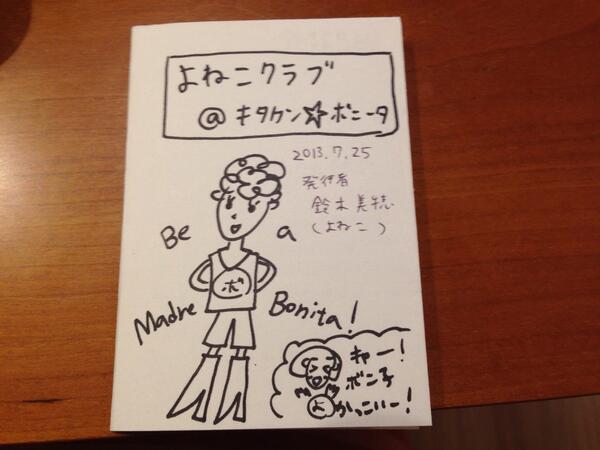 よねこクラブ
@ キタケン☆ボニータ
2013.7.25
発行者
鈴木美穂
(よねこ)
Be a
ボ
Madre Bonita!
キャー!
ボン子
かっこいー!
よ